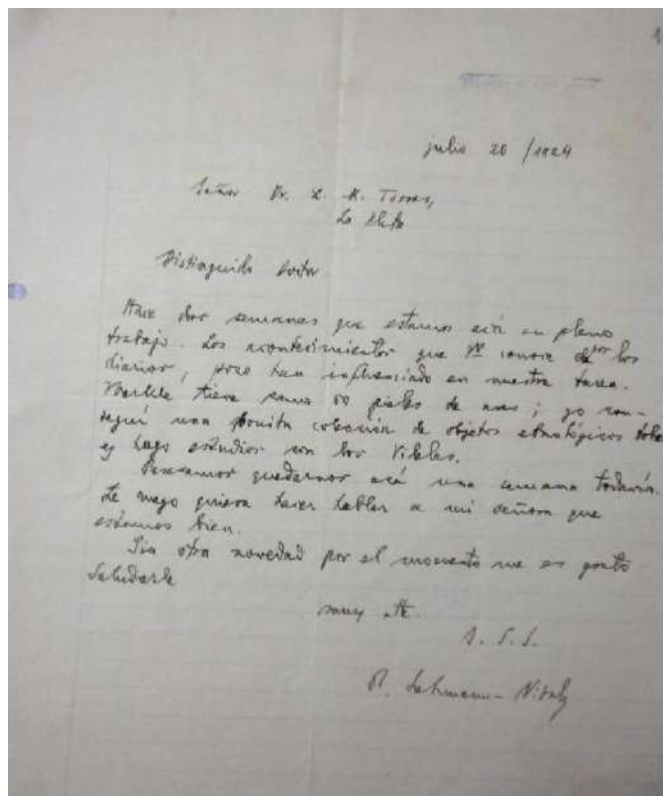 julio 20 /1924
Señor Dr. L. M. Torres,
La Plata
Distinguido doctor
Hace dos semanas que estamos acá en pleno
trabajo. Los acontecimientos que Vd conoce por los
diarios, poco han influenciado en nuestra tarea.
tiene unos 80 pieles de aves; yo con-
seguí una bonita colección de objetos etnológicos tobas
y hago estudios con los Vilelas.
Pensamos quedarnos acá una semana todavía.
Le ruego quiera hacer hablar a mi señora que
estamos bien.
Sin otra novedad por el momento me es grato
saludarle
muy att.
S. S. S.
R. Lehmann-Nitsche